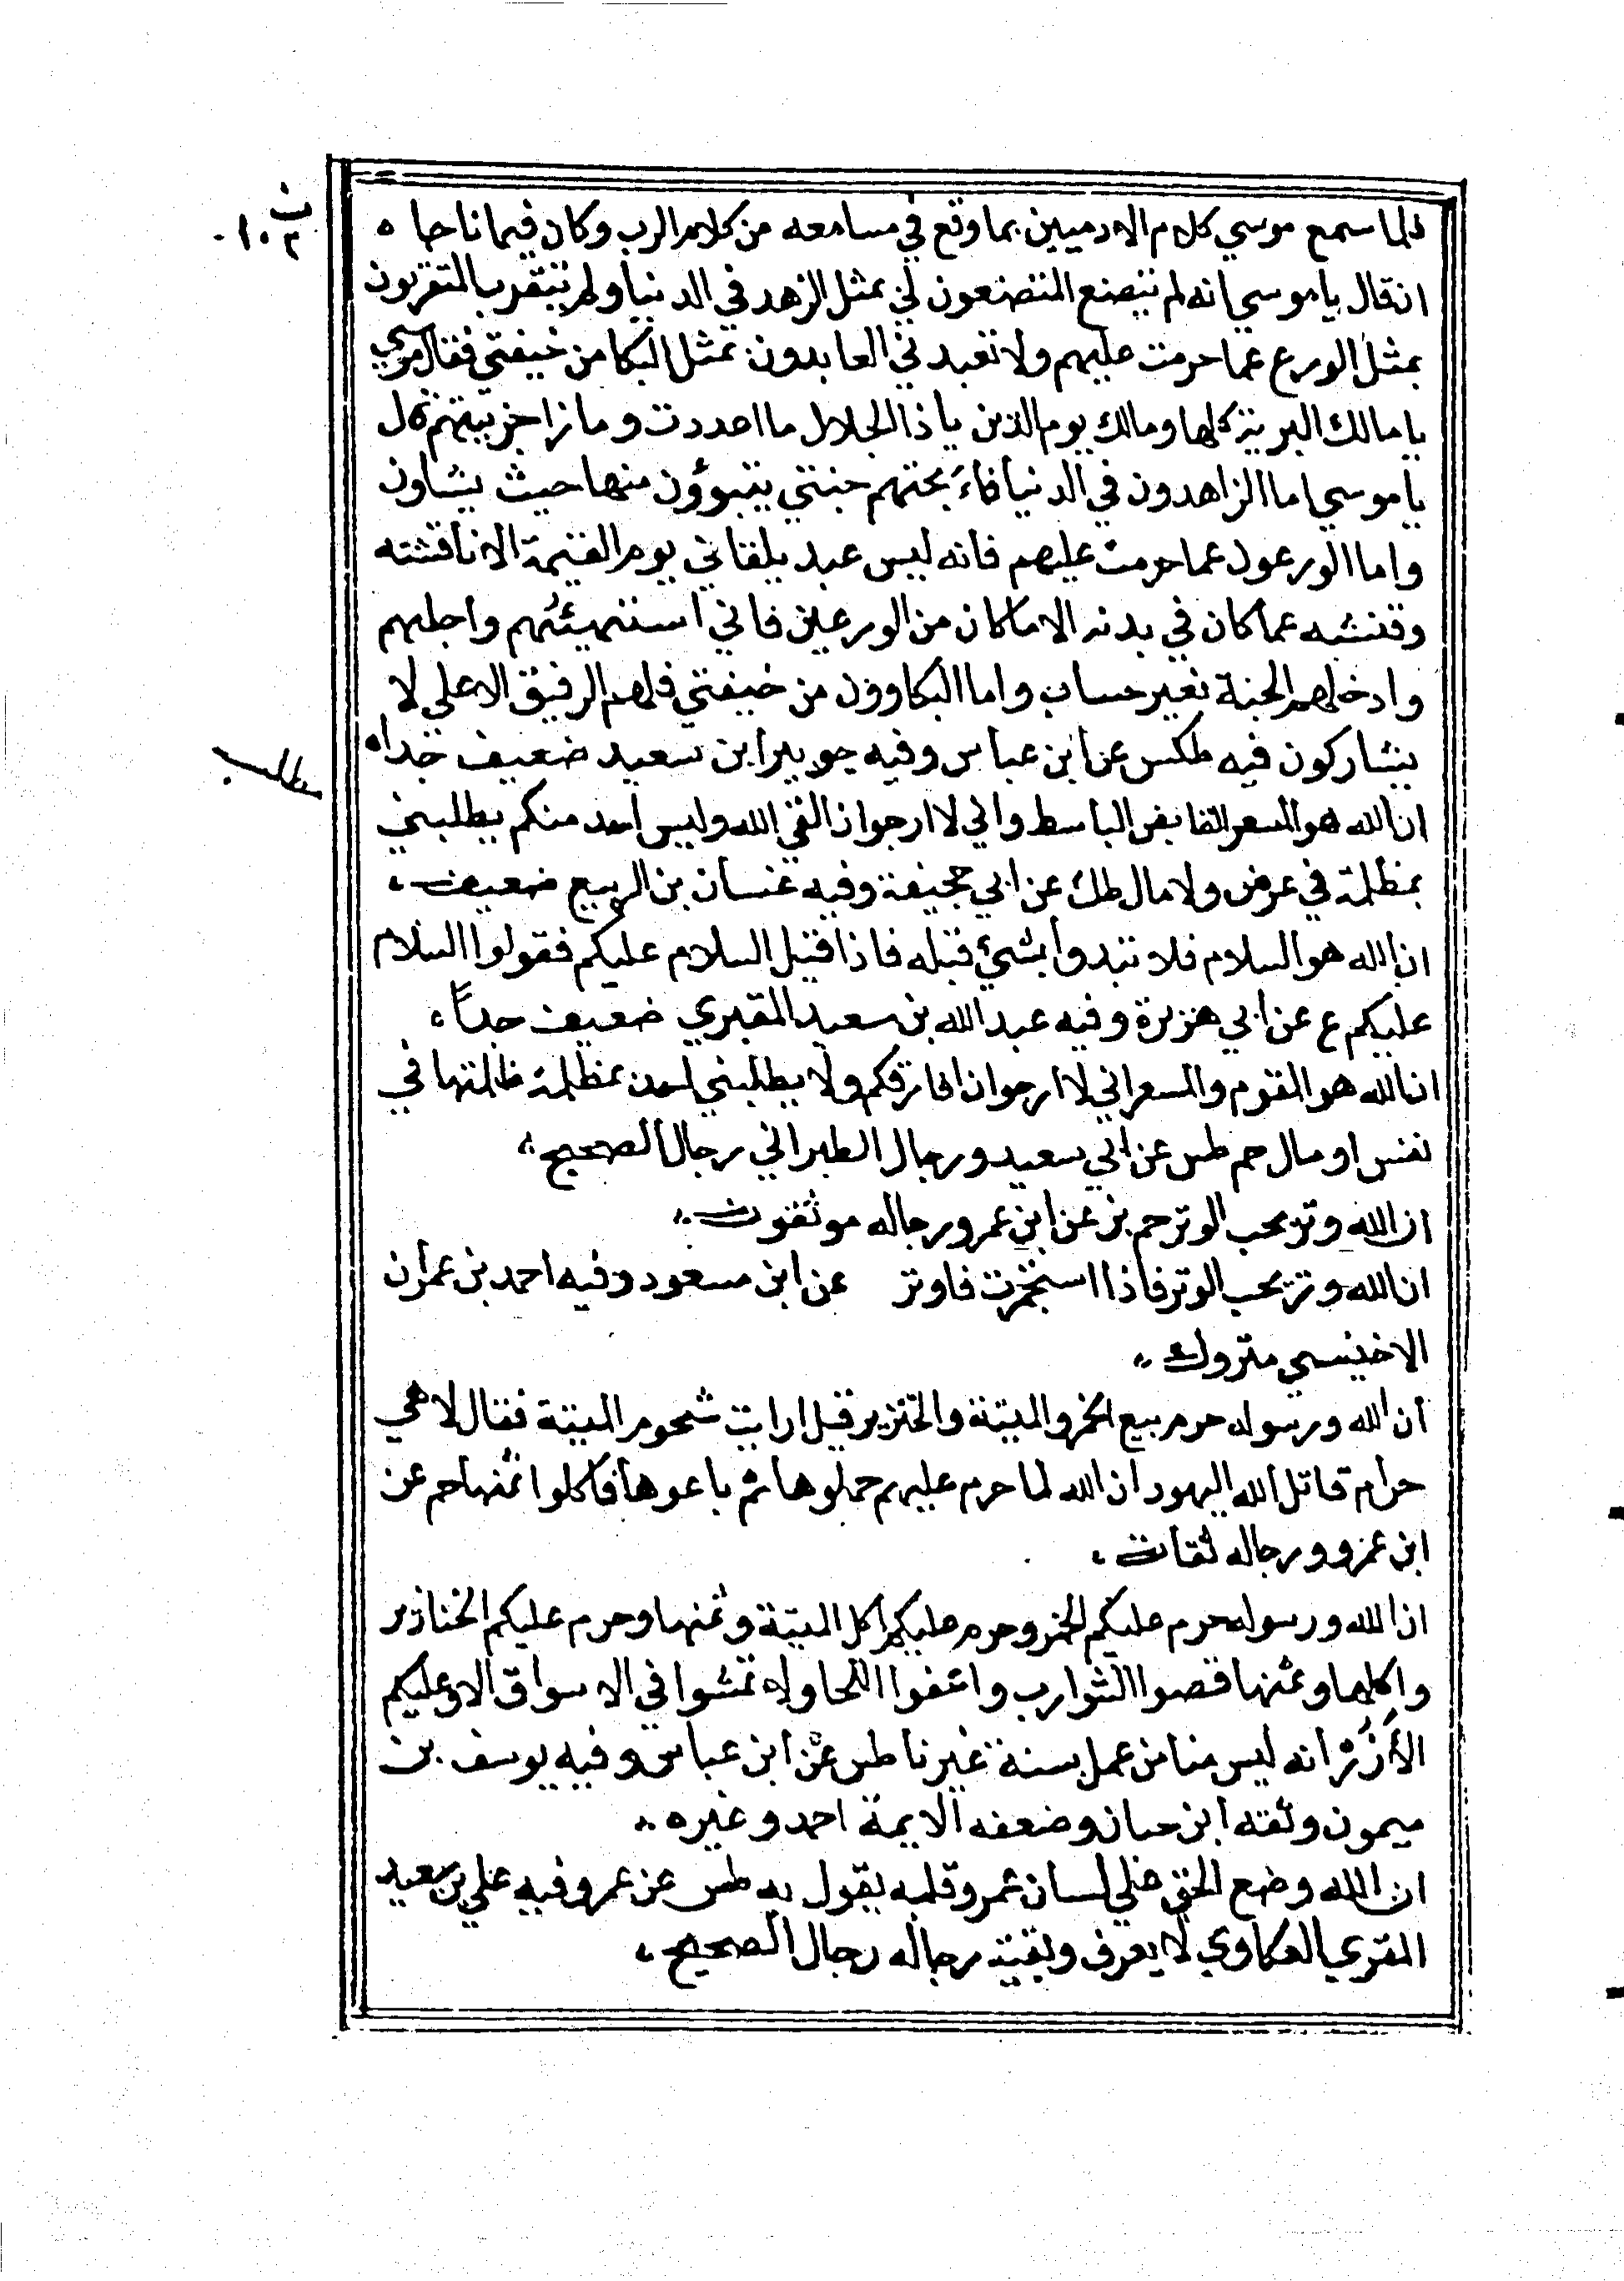 فلما سمع موسي كلام الادميين بما وقع في مسامعه من كلام الرب وكان فيما ناجاه
ان قال يا موسي انه لم يتصنع المتصنعون لي بمثل الزهد في الدنيا ولم يتقرب المتقربون
بمثل الورع عما حرمت عليهم ولا تعبدني العابدون بمثل البكا من خيفتي فقال موسي
يا مالك البرية كلها ومالك يوم الدين ياذا الجلال ما اعددت وماذا جزيتهم قال
يا موسي اما الزاهدون في الدنيا فاني بحتهم جنتي يتبوؤن منها حيث يشاون
واما الورعون عما حرمت عليهم فانه ليس عبد يلقاني يوم القيمة الا ناقشته
وفتشته عما كان في يديه الا ما كان من الورعين فاني استهيئهم واجلهم
وادخلهم الجنة بغير حساب واما البكاوون من خيفتي فلهم الرفيق الاعلي لا
يشاركون فيه طكس عن ابن عباس وفيه جويبر ابن سعيد ضعيف جداه
مطلب
ان الله هو المسعر القابض الباسط واني لا ارجوا ان القي الله وليس احد منكم يطلبني
بمظلمة في عرض ولا مال طك عن ابي جحيفة وفيه غسان بن الربيع ضعيف
ان الله هو السلام فلا تبدوا بشئ قبله فاذا قيل السلام عليكم فقولوا السلام
عليكم ع عن ابي هريرة وفيه عبد الله بن سعيد المقبري ضعيف جداً
ان الله هو المقوم والمسعر اني لا ارجوا ان افارقكم ولا يطلبني احد بمظلمة ظلمتها في
نفس او مال حم طس عن ابي سعيد ورجال الطبراني رجال الصحيح
ان الله وتر يحب الوتر حم بز عن ابن عمر ورجاله موثقون
ان الله وتر يحب الوتر فاذا استجمرت فاوتر عن ابن مسعود وفيه احمد بن عمران
الاخنسي متروك
ان الله ورسوله حرم بيع الخمر والميتة والخنزير قيل ارايت شحوم الميتة فقال لا هي
حرام قاتل الله اليهود ان الله لما حرم عليهم حملوها ثم باعوها فاكلوا ثمنها حم عن
ابن عمرو ورجاله ثقات
ان الله ورسوله حرم عليكم الخمر وحرم عليكم اكل الميتة وثمنها وحرم عليكم الخنازير
واكلها وثمنها قصوا الشوارب واعفوا اللحا ولا تمشوا في الاسواق الا وعليكم
الأزُرُ انه ليس منا من عمل بسنة غيرنا طس عن ابن عباس وفيه يوسف بن
ميمون وثقه ابن حبان وضعفه الايمة احمد وغيره
ان الله وضع الحق علي لسان عمر وقلبه يقول به طس عن عمر وفيه علي بن سعيد
المقري العكاوي لا يعرف وبقية رجاله رجال الصحيح